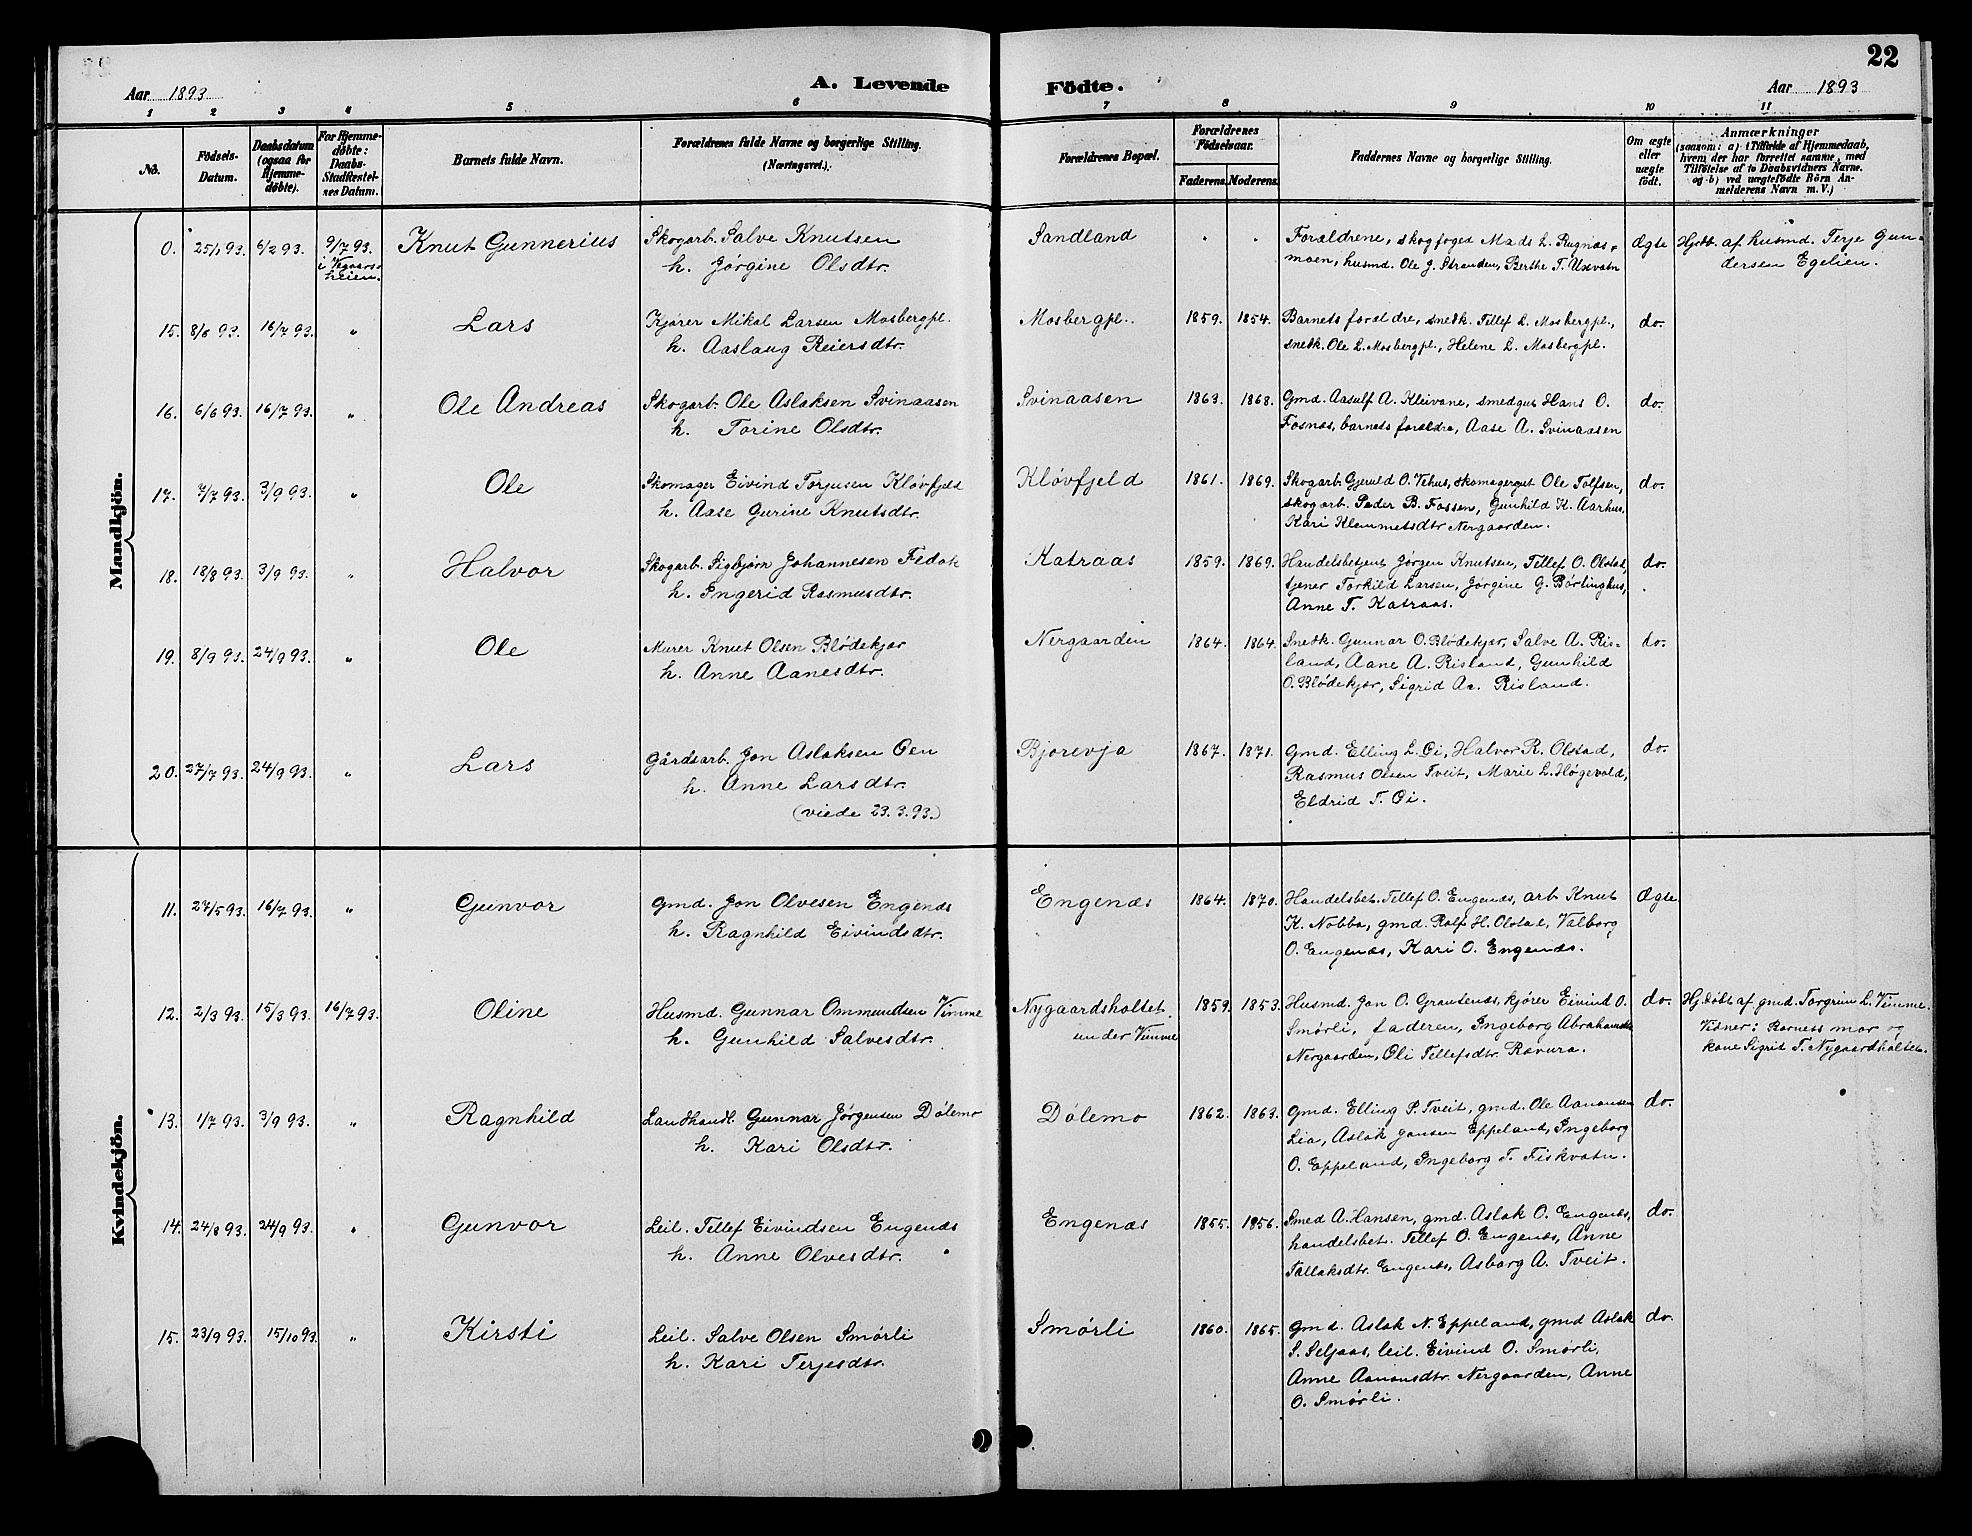 22
Aar 1893
A. Levende Födte.
Aar 1893
1 2 3 4 5 6 7 8 9 10 11
No.
Födsels-
Datum.
Daabsdatum
(ogsaa for
Hjemme-
döbte).
For Hjemme-
döbte:
Daabs-
Stadfæstel-
ses Datum.
Barnets fulde Navn.
Forældrenes fulde Navne og borgerlige Stilling.
(Næringsvei.)
Forældrenes Bopæl.
Forældrenes
Födselsaar.
Faderens. Moderens.
Faddernes Navne og borgerlige Stilling.
Om ægte
eller
uægte
født.
Anmærkninger
(saasom: a) i Tilfælde af Hjemmedaab,
hvem der har forrettet samme, med
Tilföielse af to Daabsvidners Navne.
og b) ved uægtefödte Börn An-
melderens Navn m. V.)
Mandkjön.
0. 25/1 93. 6/2 93. 9/7 93. Knut Gunnerius Skogarb. Salve Knutsen Sandland " " Forældrene, skogfoged Mads L. Rugnas- Ægte Hjdb. af husmd. Terje Gun-
i Vegaars-
heien. h. Jørgine Olsdtr. moen, husmd. Ole J. Stranden, Berthe T. Uxvatn dersen Egelien.
15. 8/6 93. 16/7 93. " Lars Kjører Mikal Larsen Mosbergpl. Mosbergpl. 1859. 1854. Barnets forældre, snedk. Tellef L. Mosbergpl., do.
h. Aaslaug Reiersdtr. snedk. Ole L. Mosbergpl., Helene L. Mosbergpl.
16. 6/6 93. 16/7 93. " Ole Andreas Skogarb. Ole Aslaksen Svinaasen Svinaasen 1863. 1868. Gmd. Aasulf A. Kleivane, smedgut Hans O. do.
h. Torine Olsdtr. Fosnæs, barnets forældre, Aase A. Svinaasen
17. 7/7 93. 3/9 93. " Ole Skomager Eivind Torjusen Kløvfjeld Kløvfjeld 1861. 1869. Skogarb. Gjeruld O. Vehus, skomagergut Ole Tolfsen, do.
h. Aase Gurine Knutsdtr. skogarb. Peder B. Fossen, Gunhild K. Aarhus,
Kari Klemmetsdtr Nergaarden.
18. 18/8 93. 3/9 93. " Halvor Skogarb. Sigbjørn Johannesen Fedok Katraas 1859. 1869. Handelsbetjent Jørgen Knutsen, Tellef O. Olstad, do.
h. Ingerid Rasmusdtr. tjener Torkild Larsen, Jørgine G. Børlinghus,
Anne T. Katraas.
19. 8/9 93. 24/9 93. " Ole Murer Knut Olsen Blødekjær Nergaarden 1864. 1864. Snedk. Gunnar O. Blødekjær, Salve A. Ris- do.
h. Anne Aanesdtr. land, Aane A. Risland, Gunhild
O. Blødekjær, Sigrid Aa. Risland.
20. 27/7 93. 24/9 93. " Lars Gårdsarb. Jon Aslaksen Øen Bjorevja 1867. 1871. Gmd. Elling L. Øi, Halvor R. Olstad, do.
h. Anne Larsdtr. Rasmus Olsen Tveit, Marie L. Høgevold,
(viede 23.3.93.) Eldrid T. Øi.
Kvindekjön.
11. 27/5 93. 16/7 93. " Gunvor Gmd. Jon Olvesen Engenæs Engenæs 1864. 1870. Handelsbet. Tellef O. Engenæs, arb Knut Ægte
h. Ragnhild Eivindsdtr. K. Nobba, gmd. Rolf H. Olstad, Valborg
O. Engenæs, Kari O. Engenæs.
12. 2/3 93. 15/3 93. 16/7 93. Oline Husmd. Gunnar Ommundsen Vimme Nygaardsholtet 1859. 1853. Husmd. Jon O. Grausenæs, kjører Eivind O. do. Hj. døbt af gmd. Torgrim L. Vimme.
h. Gunhild Salvesdtr. under Vimme Smørli, faderen, Ingeborg Abrahamsdtr Vidner: Barnets mor og
Nergaarden, Oli Tellefsdtr. Ravura. kone Sigrid T. Nygaardholtet.
13. 1/7 93. 3/9 93. " Ragnhild Landhandl. Gunnar Jørgensen Dølemo Dølemo 1862. 1863. Gmd. Elling P. Tveit, gmd. Ole Aanonsen do.
h. Kari Olsdtr. Lia, Aslak Jonsen Eppeland, Ingeborg
O. Eppeland, Ingeborg T. Fiskvatn.
14. 24/8 93. 24/9 93. " Gunvor Leil. Tellef Eivindsen Engenæs Engenæs 1855. 1856. Smed A. Hansen, gmd. Aslak O. Engenæs, do.
h. Anne Olvesdtr. handelsbet. Tellef O. Engenæs, Anne
Tallaksdtr. Engenæs, Asborg A. Tveit.
15. 23/9 93. 15/10 93. " Kirsti Leil. Salve Olsen Smørli Smørli 1860. 1865. Gmd. Aslak N. Eppeland, gmd Aslak do.
h. Kari Terjesdtr. S. Seljaas, leil. Eivind O. Smørli,
Anne Aanonsdtr. Nergaarden, Anne
O. Smørli.